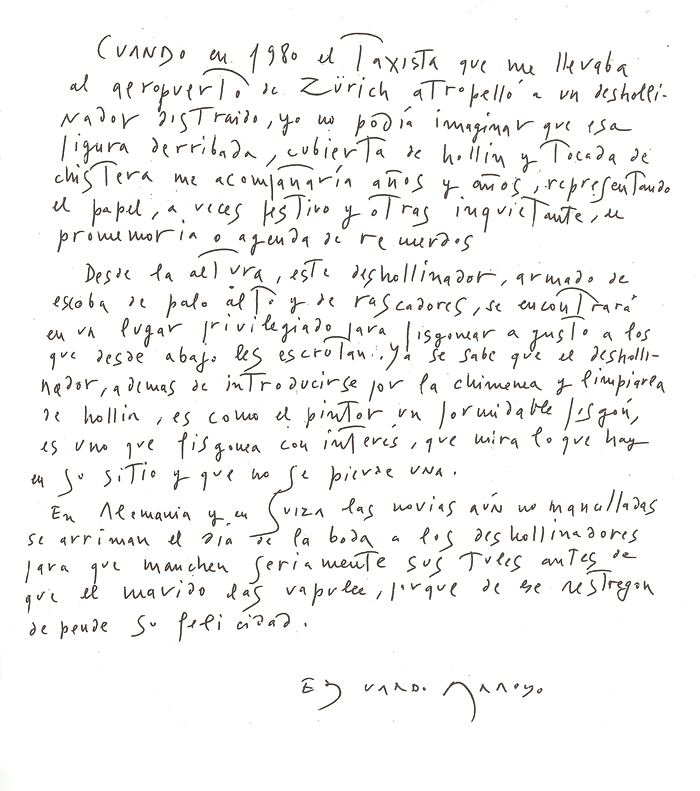 CUANDO en 1980 el Taxista que me llevaba
al aeropuerto de Zürich atropelló a un desholli-
nador distraido, yo no podía imaginar que esa
figura derribada, cubierta de hollin y Tocada de
chistera me acompañaría años y años, representando
el papel, a veces festivo y otras inquietante, de
promemoria o agenda de recuerdos
Desde la altura, este deshollinador, armado de
escoba de palo alto y de rascadores, se encontrará
en un lugar privilegiado para fisgonear a gusto a los
que desde abajo les escrutan. Ya se sabe que el desholli-
nador, ademas de introducirse por la chimenea y limpiarla
de hollin, es como el pintor un formidable fisgón,
es uno que fisgonea con interés, que mira lo que hay
en su sitio y que no se pierde una.
En Alemania y en Suiza las novias aún no mancilladas
se arriman el día de la boda a los deshollinadores
para que manchen seriamente sus tules antes de
que el marido las vapulee, porque de ese restregon
depende su felicidad.
Eduardo Arroyo